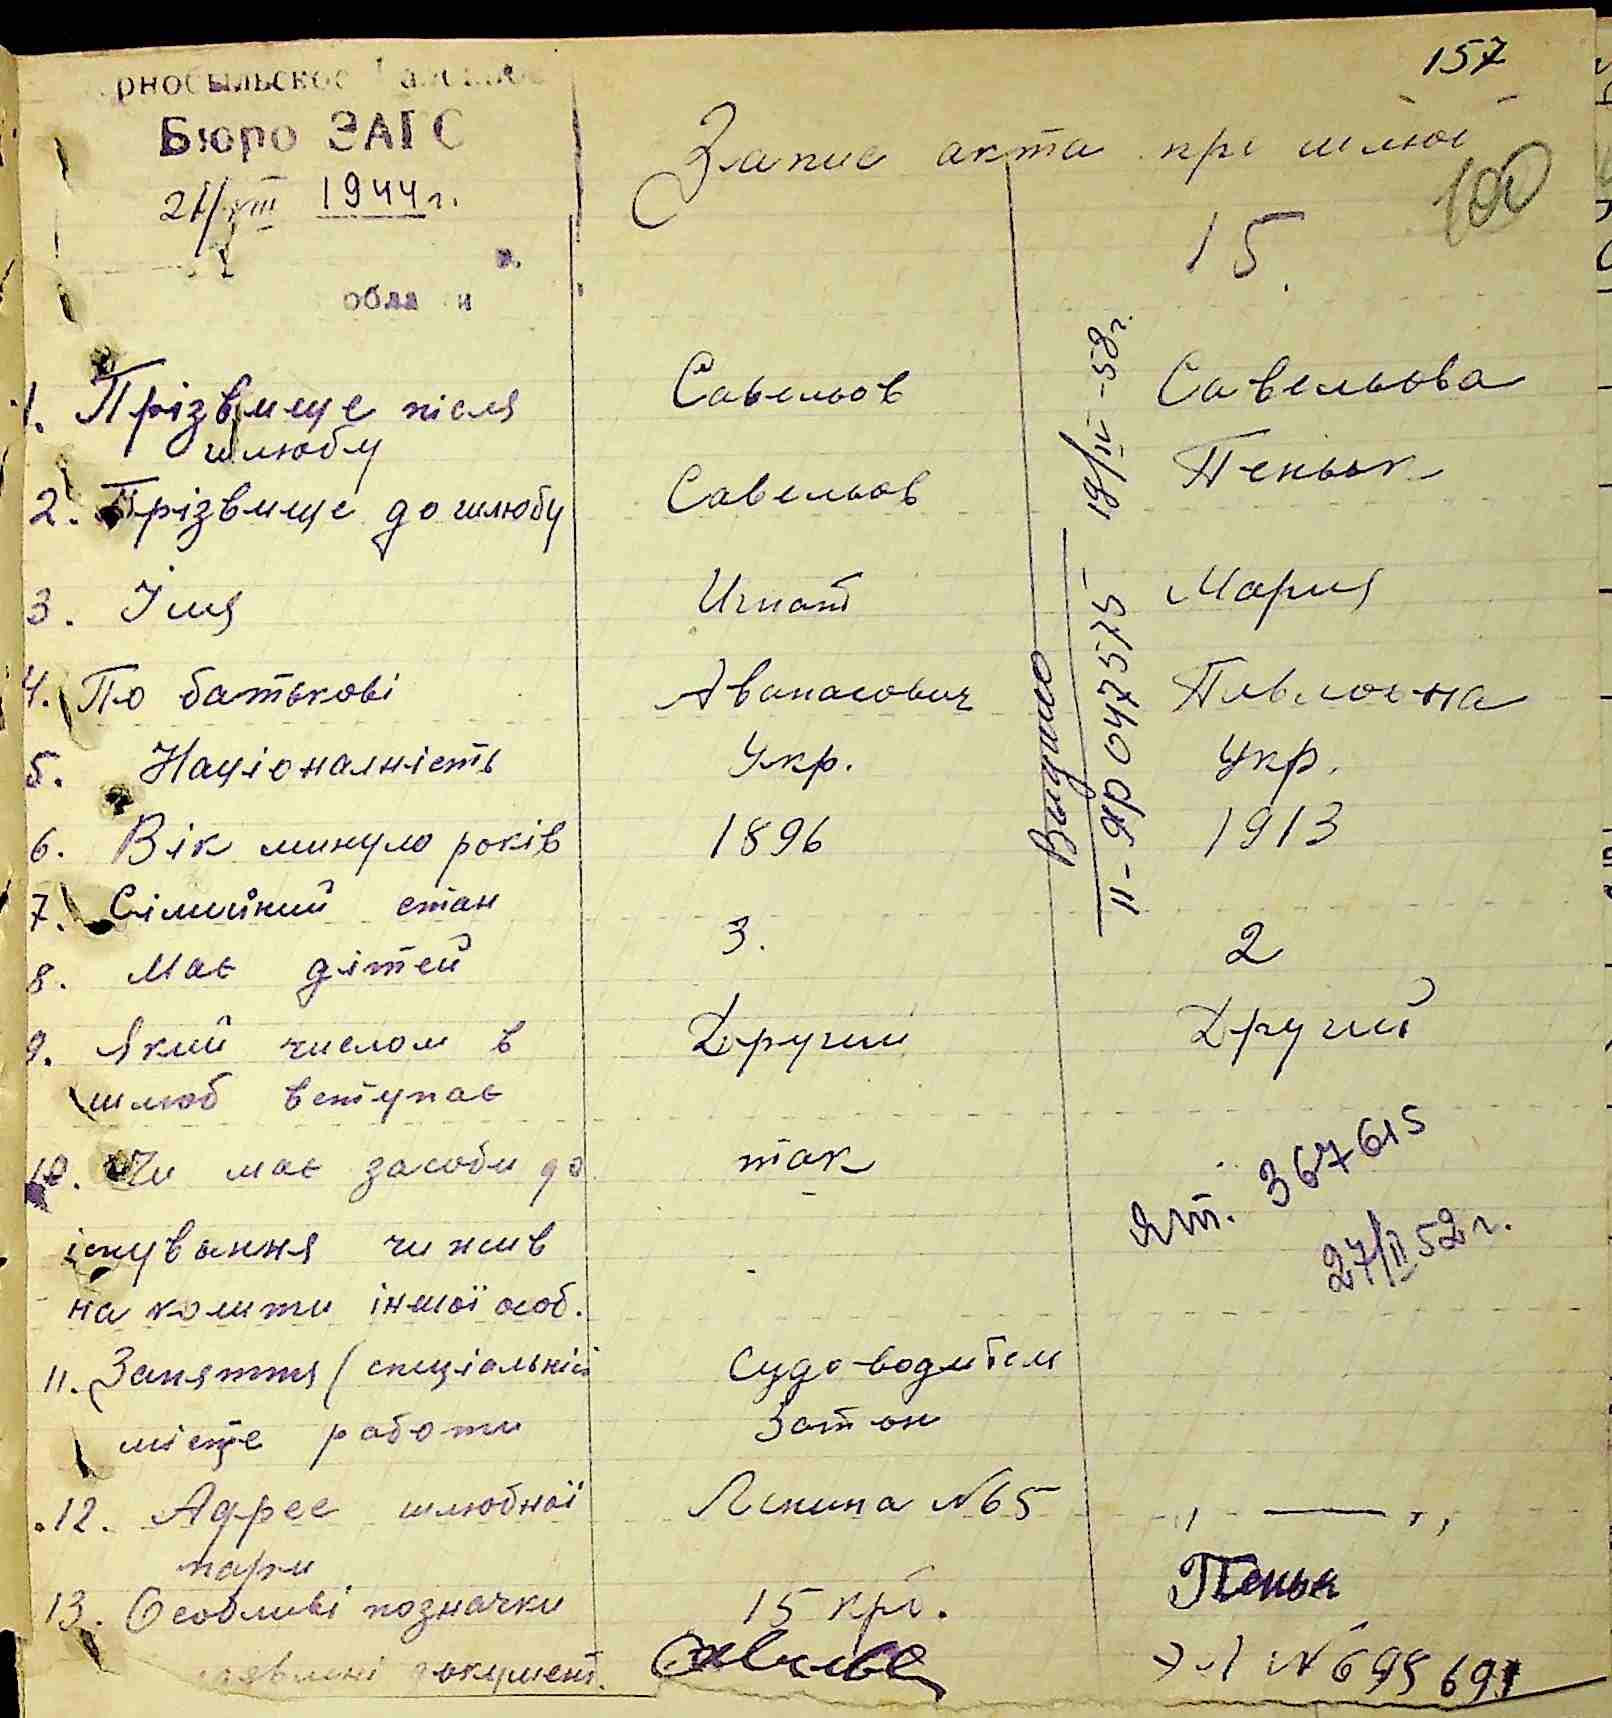 157
Бюро ЗАГС
21/VIII 1944 г.
Запис акта про шлюб
100
15
1. Прізвище після шлюбу Савельов Савельова
2. Прізвище до шлюбу Савельов Пеньок
3. Імя Игнат Мария
4. По батькові Аванасович Павловна
5. Націоналність Укр. Укр.
6. Вік минуло років 1896 1913
7. Сімийний стан
8. Має дітей 3. 2
9. Який числом в шлюб вступає Другий Другий
10. Чи має засоби до так
існування чи жив
на кошти іншої особ.
11. Заняття (спеціальніст Судоводитель
місце работи Затон
12. Адрес шлюбної пари Ленина №65 " — "
13. Особливі позначки 15 крб. Пеньк
документ. № 695691
Видано 18/IV-58 г.
II-ЯР 047575
367615
27/II 52 г.